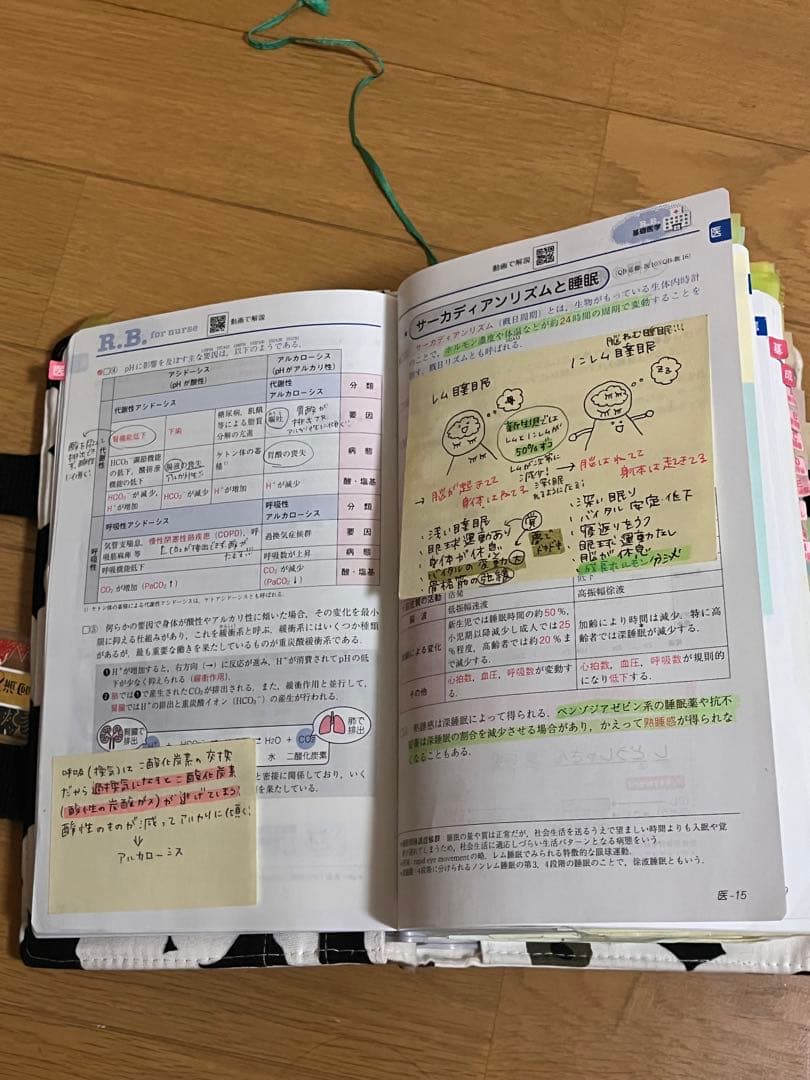 R.B. for nurse 動画で解説
医
④ pHに影響を及ぼす主な要因は，以下のようである．
アシドーシス
(pHが酸性)
アルカローシス
(pHがアルカリ性)
代謝性アシドーシス
代謝性
アルカローシス
分 類
腎機能低下
下痢
糖尿病，飢餓
等による脂質
分解の亢進
嘔吐
胃酸が
要 因
HCO₃⁻調節機能
の低下，酸排泄
機能の低下
腸液の喪失
ケトン体の蓄
積
胃酸の喪失
病 態
HCO₃⁻が減少，
H⁺が増加
HCO₃⁻が減少
H⁺が増加
H⁺が減少
酸・塩基
代謝性
呼吸性アシドーシス
呼吸性
アルカローシス
分 類
気管支喘息，慢性閉塞性肺疾患（COPD），呼
吸筋麻痺 等
過換気症候群
要 因
呼吸機能低下
呼吸数が上昇
病 態
CO₂が増加（PaCO₂↑）
CO₂が減少
（PaCO₂↓）
酸・塩基
呼吸性
1）ケトン体の蓄積による代謝性アシドーシスは，ケトアシドーシスとも呼ばれる．
⑤ 何らかの要因で身体が酸性やアルカリ性に傾いた場合，その変化を最小
限に抑える仕組みがあり，これを緩衝系と呼ぶ．緩衝系にはいくつか種類
があるが，最も重要な働きを果たしているものが重炭酸緩衝系である．
❶ H⁺が増加すると，右方向（→）に反応が進み，H⁺が消費されてpHの低
下が少なく抑えられる（緩衝作用）．
❷ 肺では❶で産生されたCO₂が排出される．また，緩衝作用と並行して，
腎臓ではH⁺の排出と重炭酸イオン（HCO₃⁻）の産生が行われる．
腎臓で
排出
肺で
排出
H₂O + CO₂
水 二酸化炭素
と密接に関係しており，いく
を果たしている．
呼吸(換気)は二酸化炭素の交換
だから過換気になると二酸化炭素
(酸性の炭酸ガス)が逃げてしまう
酸性のものが減ってアルカリに傾く
↓
アルカローシス
動画で解説
R.B.
基礎医学
医
サーカディアンリズムと睡眠
サーカディアンリズム（概日周期）とは，生物がもっている生体内時計
のことで，ホルモン濃度や体温などが約24時間の周期で変動することを
指す．概日リズムとも呼ばれる．
脳ねむ睡眠!!!
レム睡眠
ノンレム睡眠
zz
新生児では
レムとノンレムが
50%ずつ
レムが次第に
減少!
→脳が起きてて
身体はねてる
→脳はねてて
身体は起きてる
・浅い睡眠
・眼球運動あり
・身体が休息
・バイタルの変動大
・骨格筋の弛緩
・深い眠り
・バイタル安定低下
・寝返りをうつ
・眼球運動なし
・脳が休息
・成長ホルモン分泌
活発
低下
脳 波
低振幅速波
高振幅徐波
による変化
新生児では睡眠時間の約50％，
小児期以降減少し成人では25
％程度，高齢者では約20％ま
で減少する．
加齢により時間は減少．特に高
齢者では深睡眠が減少する．
その他
心拍数，血圧，呼吸数が変動す
る．
心拍数，血圧，呼吸数が規則的
になり低下する．
熟睡感は深睡眠によって得られる．ベンゾジアゼピン系の睡眠薬や抗不
安薬は深睡眠の割合を減少させる場合があり，かえって熟睡感が得られな
くなることもある．
：睡眠の量や質は正常だが，社会生活を送るうえで望ましい時間よりも入眠や覚
醒が遅れてしまうため，社会生活に適応しづらい生活パターンとなる病態をいう．
：rapid eye movementの略．レム睡眠でみられる特徴的な眼球運動．
：4段階に分けられるノンレム睡眠の第3，4段階の睡眠のことで，徐波睡眠ともいう．
医-15